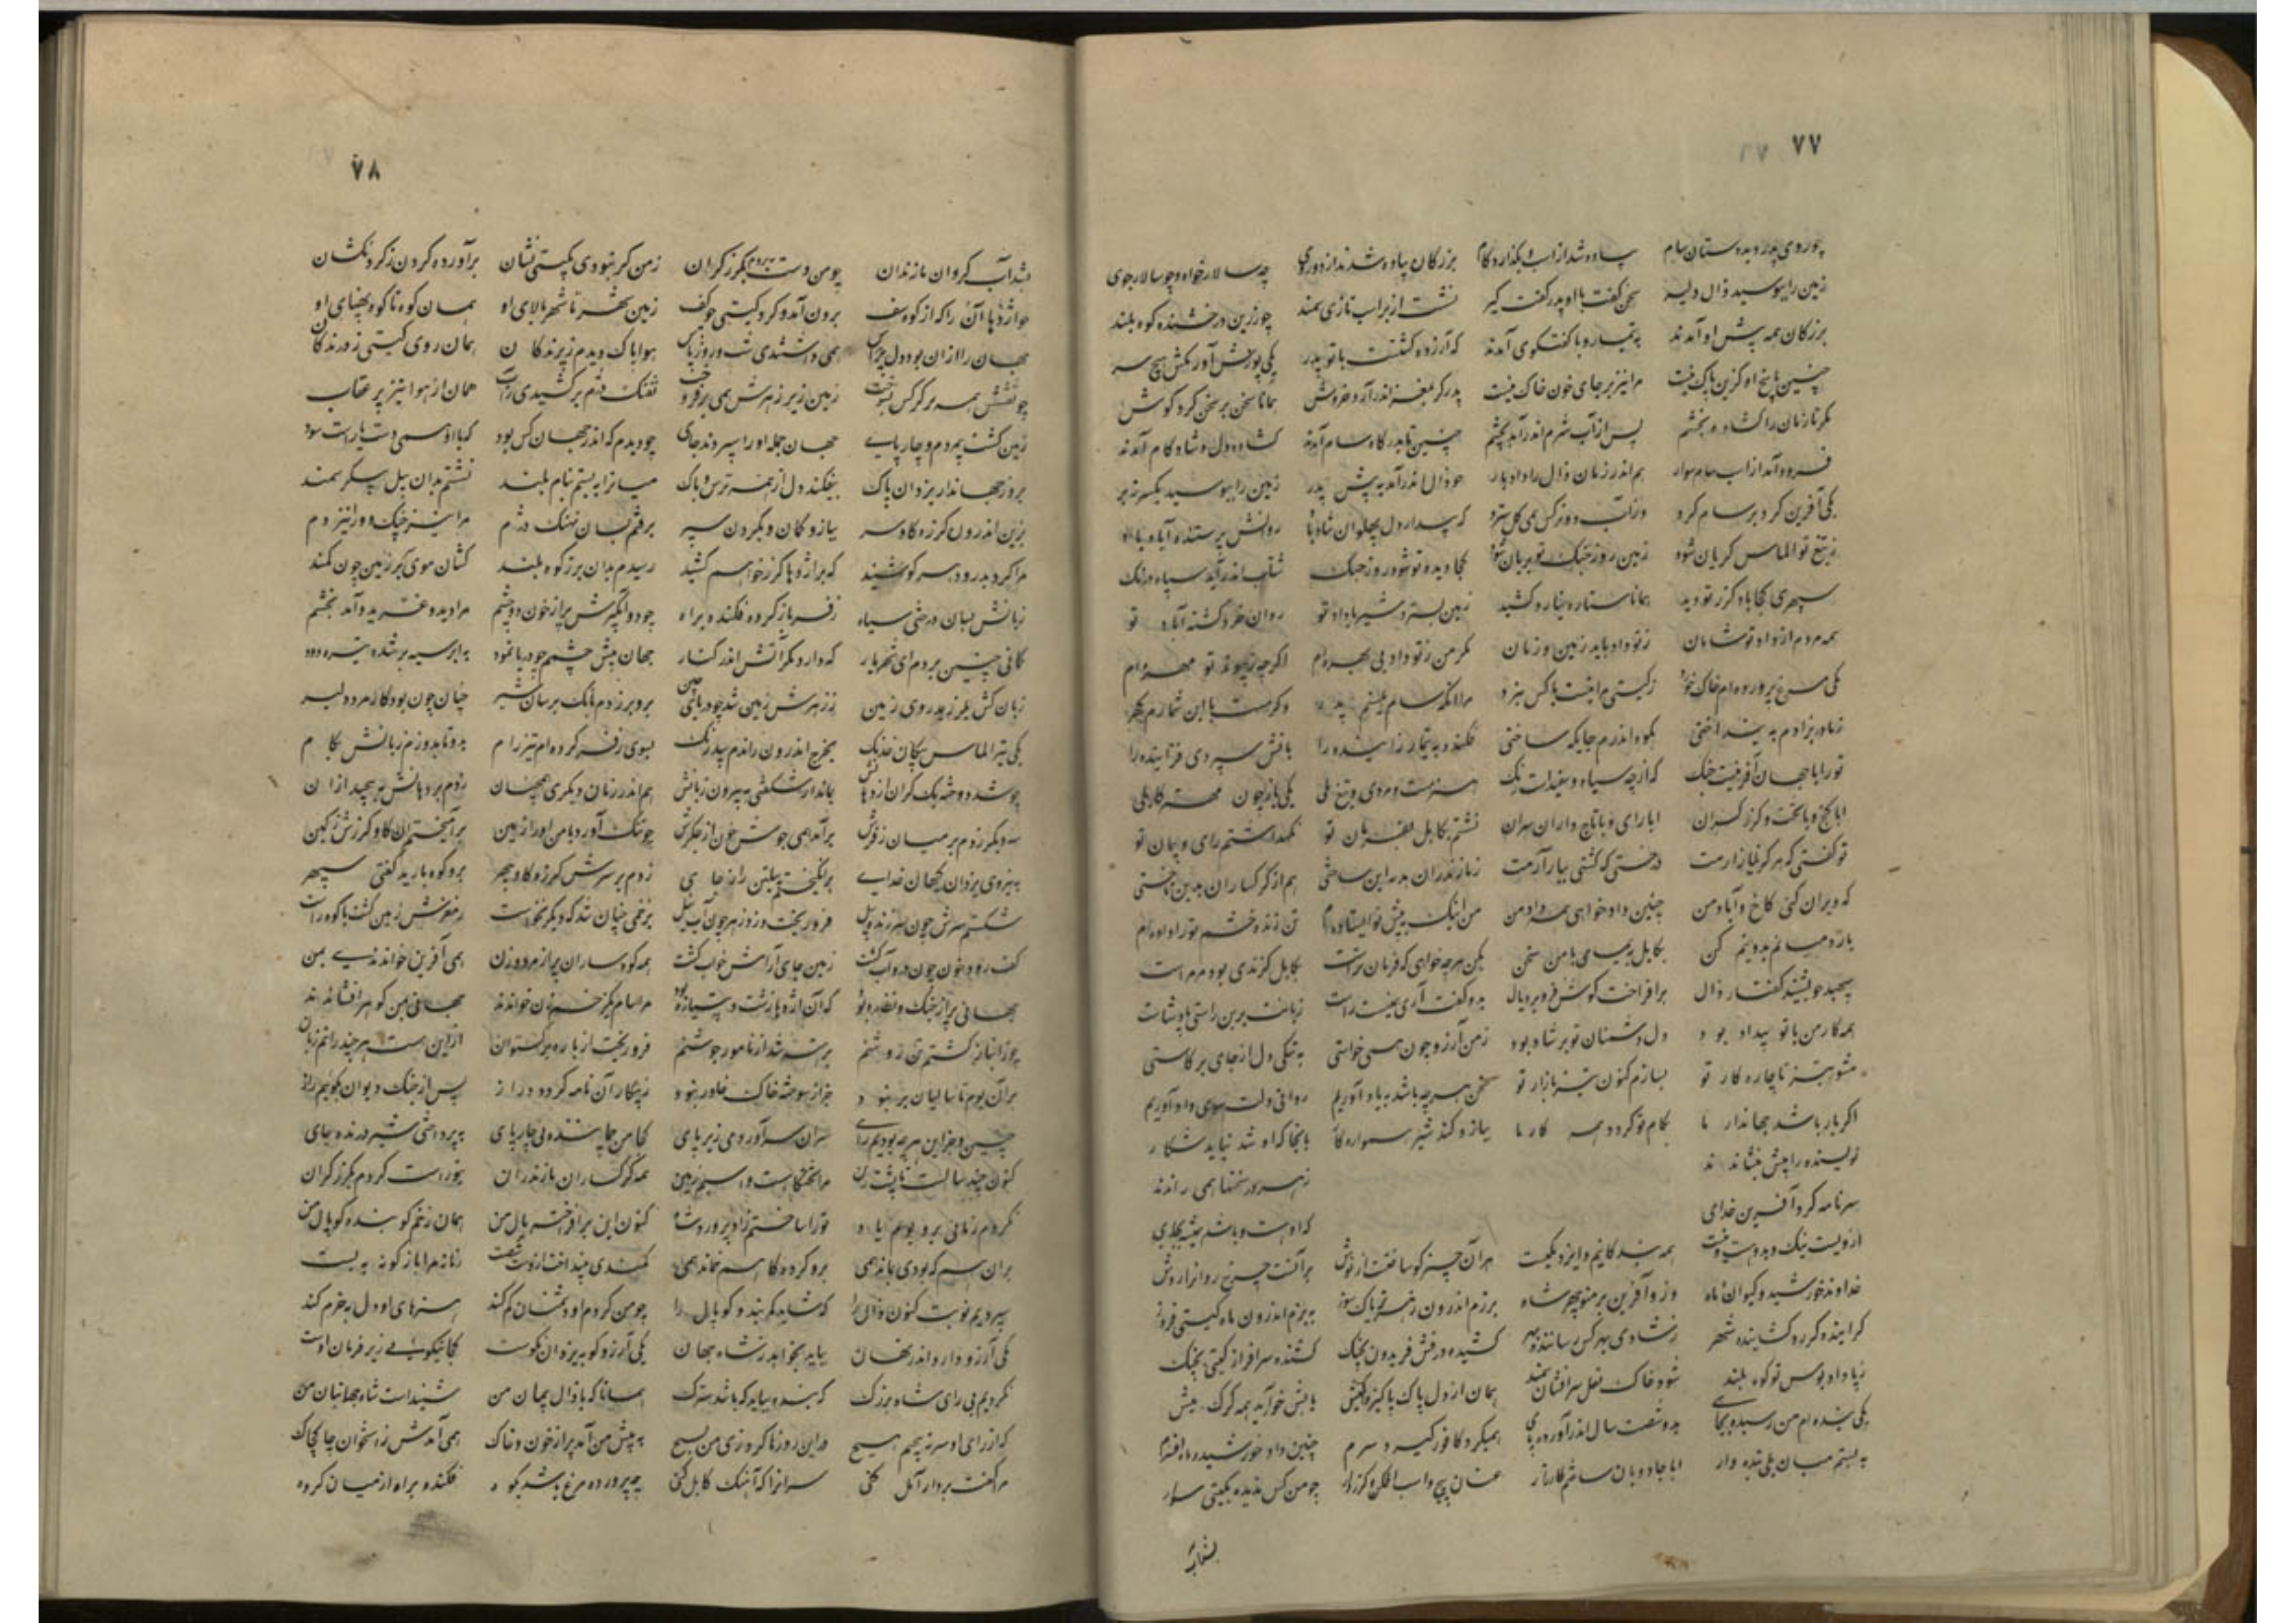 ۷۷
چو روی پدر دید دستان سام پیاده شد از اسپ و بگذارد گام بزرگان پیاده شدند از دو روی چه سالارخواه و چو سالارجوی
زمین را ببوسید زال دلیر سخن گفت با او پدر گفت گیر نشست از بر اسپ تازی سمند چو زرین درخشنده کوه بلند
بزرگان همه پیش او آمدند به تیمار و با گفتگوی آمدند که آزرده گشتست با تو پدر یکی پوزش آور مکش هیچ سر
چنین پاسخ آورد کزین باک نیست مرا نیز بر جای خون خاک نیست پدر گر بمغز اندر آرد خروش همانا سخن بر سخن کرد گوش
پس از آب شرم اندر آمد بچشم چنین تا بدرگاه سام آمدند گشاده دل و شادکام آمدند
فرود آمد از اسپ سام سوار هم اندر زمان زال را داد بار چو زال اندر آمد به پیش پدر زمین را ببوسید
یکی آفرین کرد بر سام کرد وز آب دو نرگس همی گل سترد که بیدار دل پهلوان شاد باد روانش پرستنده
ز تیغ تو الماس گریان شود زمین روز جنگ تو بریان شود کجا دیده تو شود روز جنگ شتاب اندر آید سپاه درنگ
سپهری کجا باد گرز تو دید همانا ستاره نیارد کشید زمین بسترد شیر با داد تو روان خرد گشته آباد تو
همه مردم از داد تو شادمان ز تو داد یابد زمین و زمان مگر من ز تو داد بی بهره ام اگرچه به پیوند تو شهره ام
یکی مرغ پرورده ام خاک خورد ز گیتی مرا نیست با کس نبرد
ز مادر بزادم به کوه اندرم جایگه ساختی فکندی به تیمار زاینده را بآتش سپردی فزاینده را
تو را با جهان آفرینست جنگ که از چه سیاه و سفید است رنگ
ابا گنج و با تخت و گرز گران ابا رای و با تاج داران سران نشستم بکابل بفرمان تو نگهداشتم رای و پیمان تو
تو گفتی که هرگز نیازارمت درختی که کشتی ببار آرمت ز مازندران هدیه این ساختی هم از گرگساران بدین تاختی
که ویران کنی کاخ آباد من چنین داد خواهی همی داد من من اینک به پیش تو ایستاده ام تن زنده خشم تو را داده ام
باره میانم بدو نیم کن بکابل به پیمای با من سخن بکن هرچه خواهی که فرمان تراست بکابل گزندی بود مر مراست
سپهبد چو بشنید گفتار زال برافراخت گوش فرو برد یال بدو گفت آری همینست راست زبانت برین راستی بر گواست
همه کار من با تو بیداد بود دل دشمنان تو بر شاد بود ز من آرزو چون همی خواستی به تنگی دل از جای بر خاستی
مشو تیز تا چاره کار تو بسازم کنون تیز بازار تو سخن هرچه باشد بیاد آوریم روان و دلت سوی داد آوریم
اگر یار باشد جهاندار ما بکام تو گردد همه کار ما ببازو کند شیر همواره کار
نویسنده را پیش بنشاندند ز هر در سخنها همی راندند
سر نامه کرد آفرین خدای کجا هست و باشد همیشه بجای
ازویست نیک و بد و هست و نیست همه بندگانیم و ایزد یکیست هر آن چیز کو ساخت
خداوند خورشید و کیوان و ماه وزو آفرین بر منوچهر شاه برزم اندرون زهر تریاک سوز به بزم اندرون ماه گیتی فروز
گراینده گرز و گشاینده شهر ز شادی بهر کس رساننده بهر کشنده درفش فریدون بجنگ کشنده سرافراز گیتی پلنگ
یکی بنده ام من رسیده بجای بدو شصت سال اندر آورده پای همی گرد کافور گیرد سرم چنین داد خورشید و ماه افسرم
به بستم میان یلی بنده وار ابا جادوان ساختم کارزار عنان پیچ و اسپ افکن و گرزدار چو من کس ندیده بگیتی سوار
بشد آب
۷۸
بشد آب گردان مازندران چو من دست بردم بگرز گران ز من گر نبودی بگیتی نشان برآورده گردن ز گردنکشان
چو اژدها آن را که از کوه سف برون آمد و کرد گیتی چو کف زمین شهر تا شهر بالای او همان کوه تا کوه پهنای او
جهان را ازان بود دل پر هراس همی داشتندی شب و روز پاس هوا پاک دیدم ز پرندگان همان روی گیتی ز درندگان
ز تفش همه پر کرکس بسوخت زمین زیر زهرش همی برفروخت نهنگ دژم برکشیدی ز آب همان از هوا تیز پر عقاب
زمین گشت بی مردم و چارپای جهان جمله او را سپردند جای چو دیدم که اندر جهان کس نبود که با او همی دست یارست سود
بزور جهاندار یزدان پاک بیفکندم از دل همه ترس و باک میان را ببستم بنام بلند نشستم بدان پیل پیکر سمند
بزین اندرون گرزه گاوسر ببازو کمان و بگردن سپر برفتم بسان نهنگ دژم مرا تیز چنگ و ورا تیز دم
مرا کرد بدرود هر کو شنید که بر اژدها گرز خواهم کشید رسیدم بدان برز کوه بلند کشان موی سر بر زمین چون کمند
زبانش بسان درختی سیاه زفر باز کرده فکنده براه چو دو آبگیرش پر از خون دو چشم مرا دید و غرید و آمد بخشم
گمانی چنین بردم ای شهریار که دارد مگر آتش اندر کنار جهان پیش چشمم چو دریا نمود به ابر سیه بر شده تیره دود
ز بانگش بلرزید روی زمین ز زهرش زمین شد چو دریای چین برو بر زدم بانگ بر سان شیر چنان چون بود کار مرد دلیر
یکی تیر الماس پیکان خدنگ بچرخ اندرون راندم بیدرنگ بسوی زفر کرده ام تیز رام بدو تا بدوزم زبانش بکام
چو شد دوخته یک کران از دهانش بماند از شگفتی به بیرون زبانش هم اندر زمان دیگری همچنان زدم بر دهانش به پیچید ازان
سه دیگر زدم بر میان زفرش برآمد همی جوش خون از جگرش چو تنگ آورد با من او را زمین برآهیختم آن گاو گرزش ز کین
به نیروی یزدان کیهان خدای برانگیختم پیلتن را ز جای زدم بر سرش گرزه گاوچهر برو کوه بارید گفتی سپهر
شکستم سرش چون سر ژنده پیل فرو ریخت زو زهر چون آب نیل بزخمی چنان شد که دیگر نخاست ز مغزش زمین گشت با کوه راست
کف رود خون چون درو آب گشت زمین جای آرامش و خواب گشت همه کوهساران پر از مرد و زن همی آفرین خواندندی بمن
جهانی بر آن جنگ نظاره بود که آن اژدها زشت پتیاره بود مرا سام یک زخم ازان خواندند جهانی بمن گوهر افشاندند
چو زو باز گشتم تن روشنم برهنه شد از نامور جوشنم فرو ریخت از باره برگستوان
بر آن بوم تا سالیان بر نبود جز از سوخته خاک خاور نبود ز پیکار آن نامه گردد دراز پس از جنگ دیوان بگویم راز
چنین و جز این هرچه بودیم رای سران را سر آوردمی زیر پای کجا من چمانیدمی چارپای بپرداختی شیر درنده جای
کنون چند سالست تا پشت زین مرا تختگاهست و اسپم زمین همه گرگساران و مازندران بتو راست کردم بگرز گران
نکردم زمانی بر و بوم یاد تو را ساختم زاد و پرورد شاد کنون این برافراخته یال من همان زخم کوبنده کوپال من
بر آن هم که بودی نماند همی بر و گردگاهم خماند همی کمندی بینداخت از دست شصت زمانه مرا باژگونه ببست
سپردیم نوبت کنون زال را که شاید کمربند و کوپال را چو من کردم او دشمنان کم کند هنرهای او دل به خرم کند
یکی آرزو دارد اندر نهان بیاید بخواهد ز شاه جهان یکی آرزو کو به یزدان نکوست کجا نیکوئی زیر فرمان اوست
نکردیم بی رای شاه بزرگ که بنده نباید که باشد سترگ همانا که با زال پیمان من شنیدست شاه جهانبان من
که از رای او سر نپیچم هیچ درین روزها کرد زی من بسیچ به پیش من آمد پر از خون و خاک همی آمدش ز استخوان چاک چاک
مرا گفت بردار آمل کنی سزاتر که آهنگ کابل کنی چو پرورده مرغ باشد بکوه فکنده براه از میان گروه